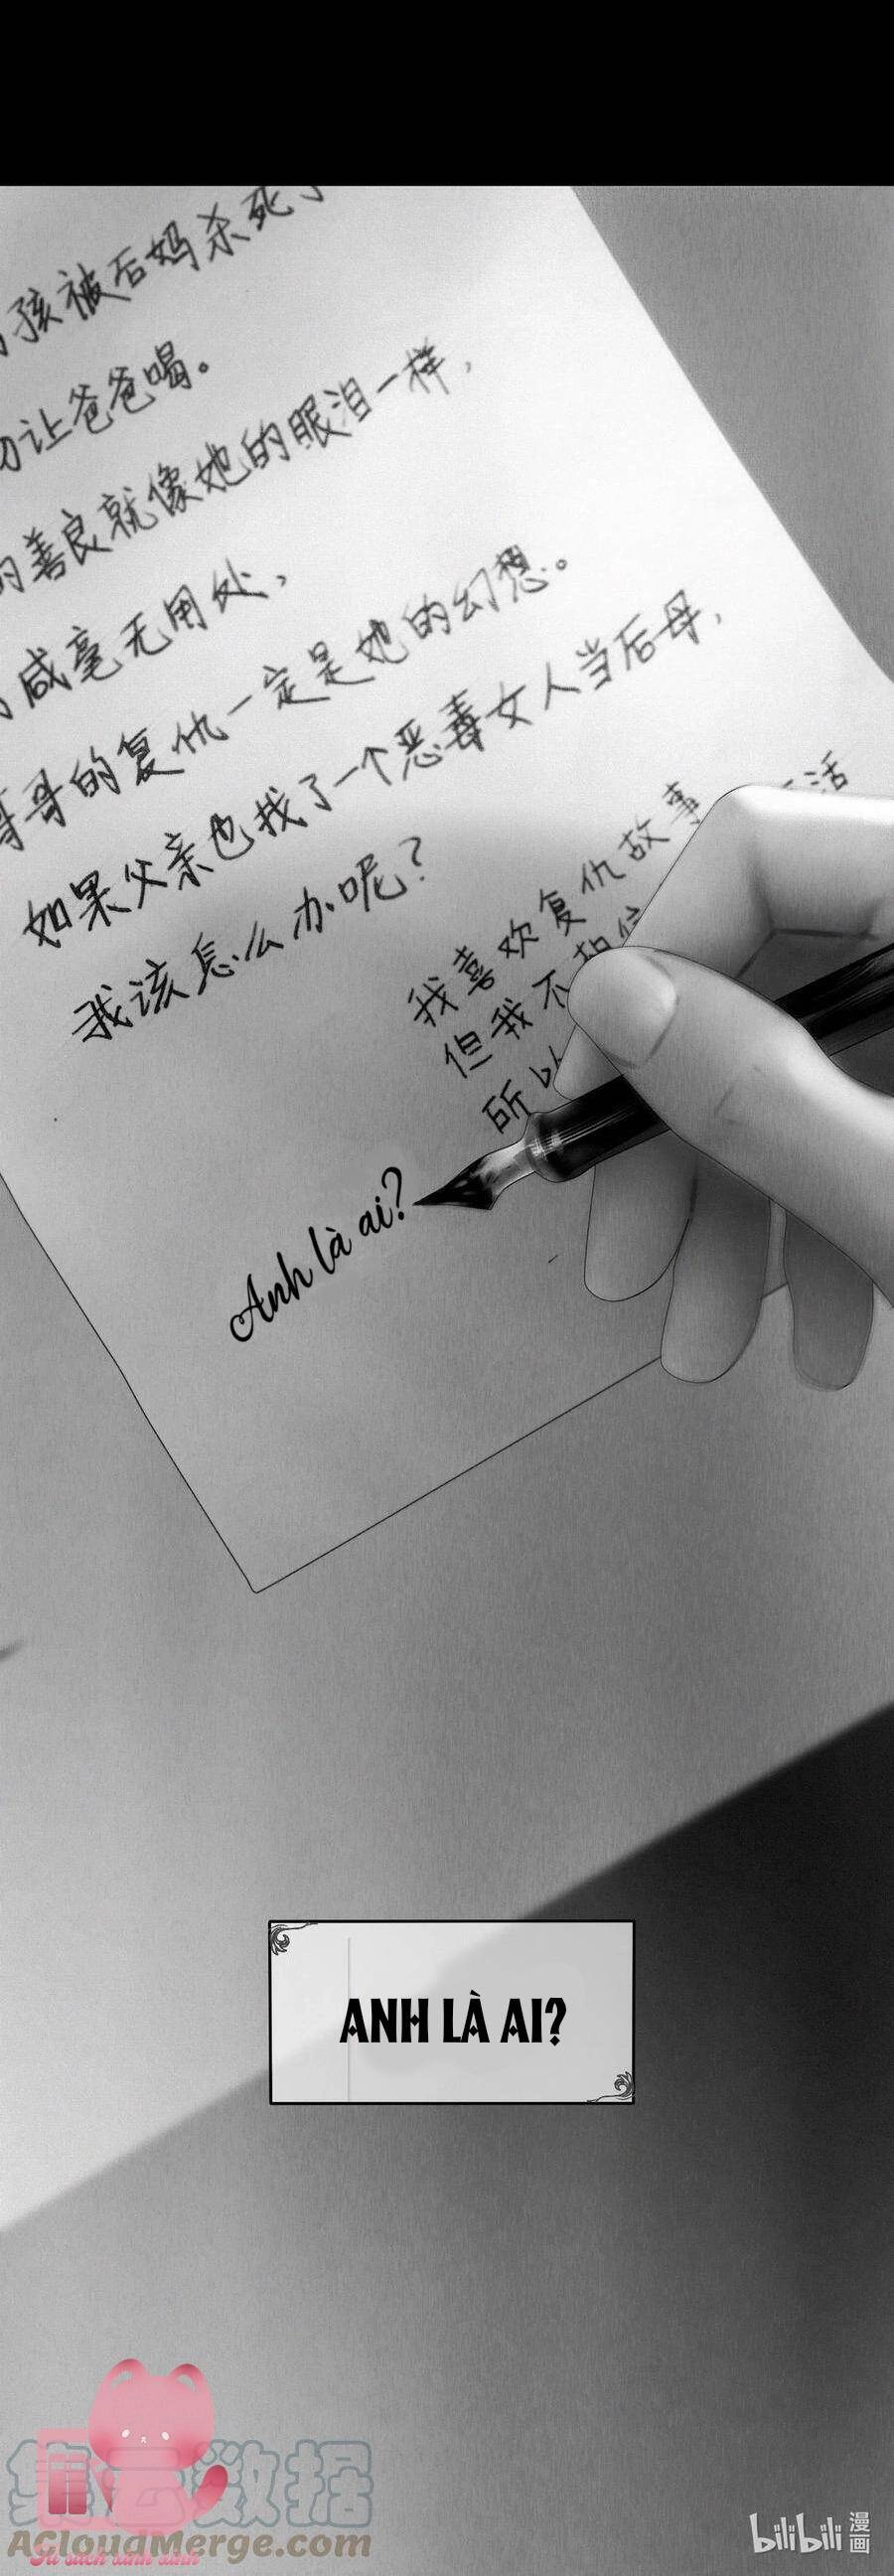 孩被后妈杀死了
让爸爸喝。
的善良就像她的眼泪一样，
咸毫无用处，
哥哥的复仇一定是她的幻想。
如果父亲也找了一个恶毒女人当后母，
我该怎么办呢？
我喜欢复仇故事 活
但我不相信
所以
Anh là ai?
ANH LÀ AI?
集云数据
ACloudMerge.com
Tủ sách xinh xinh
bilibili 漫画